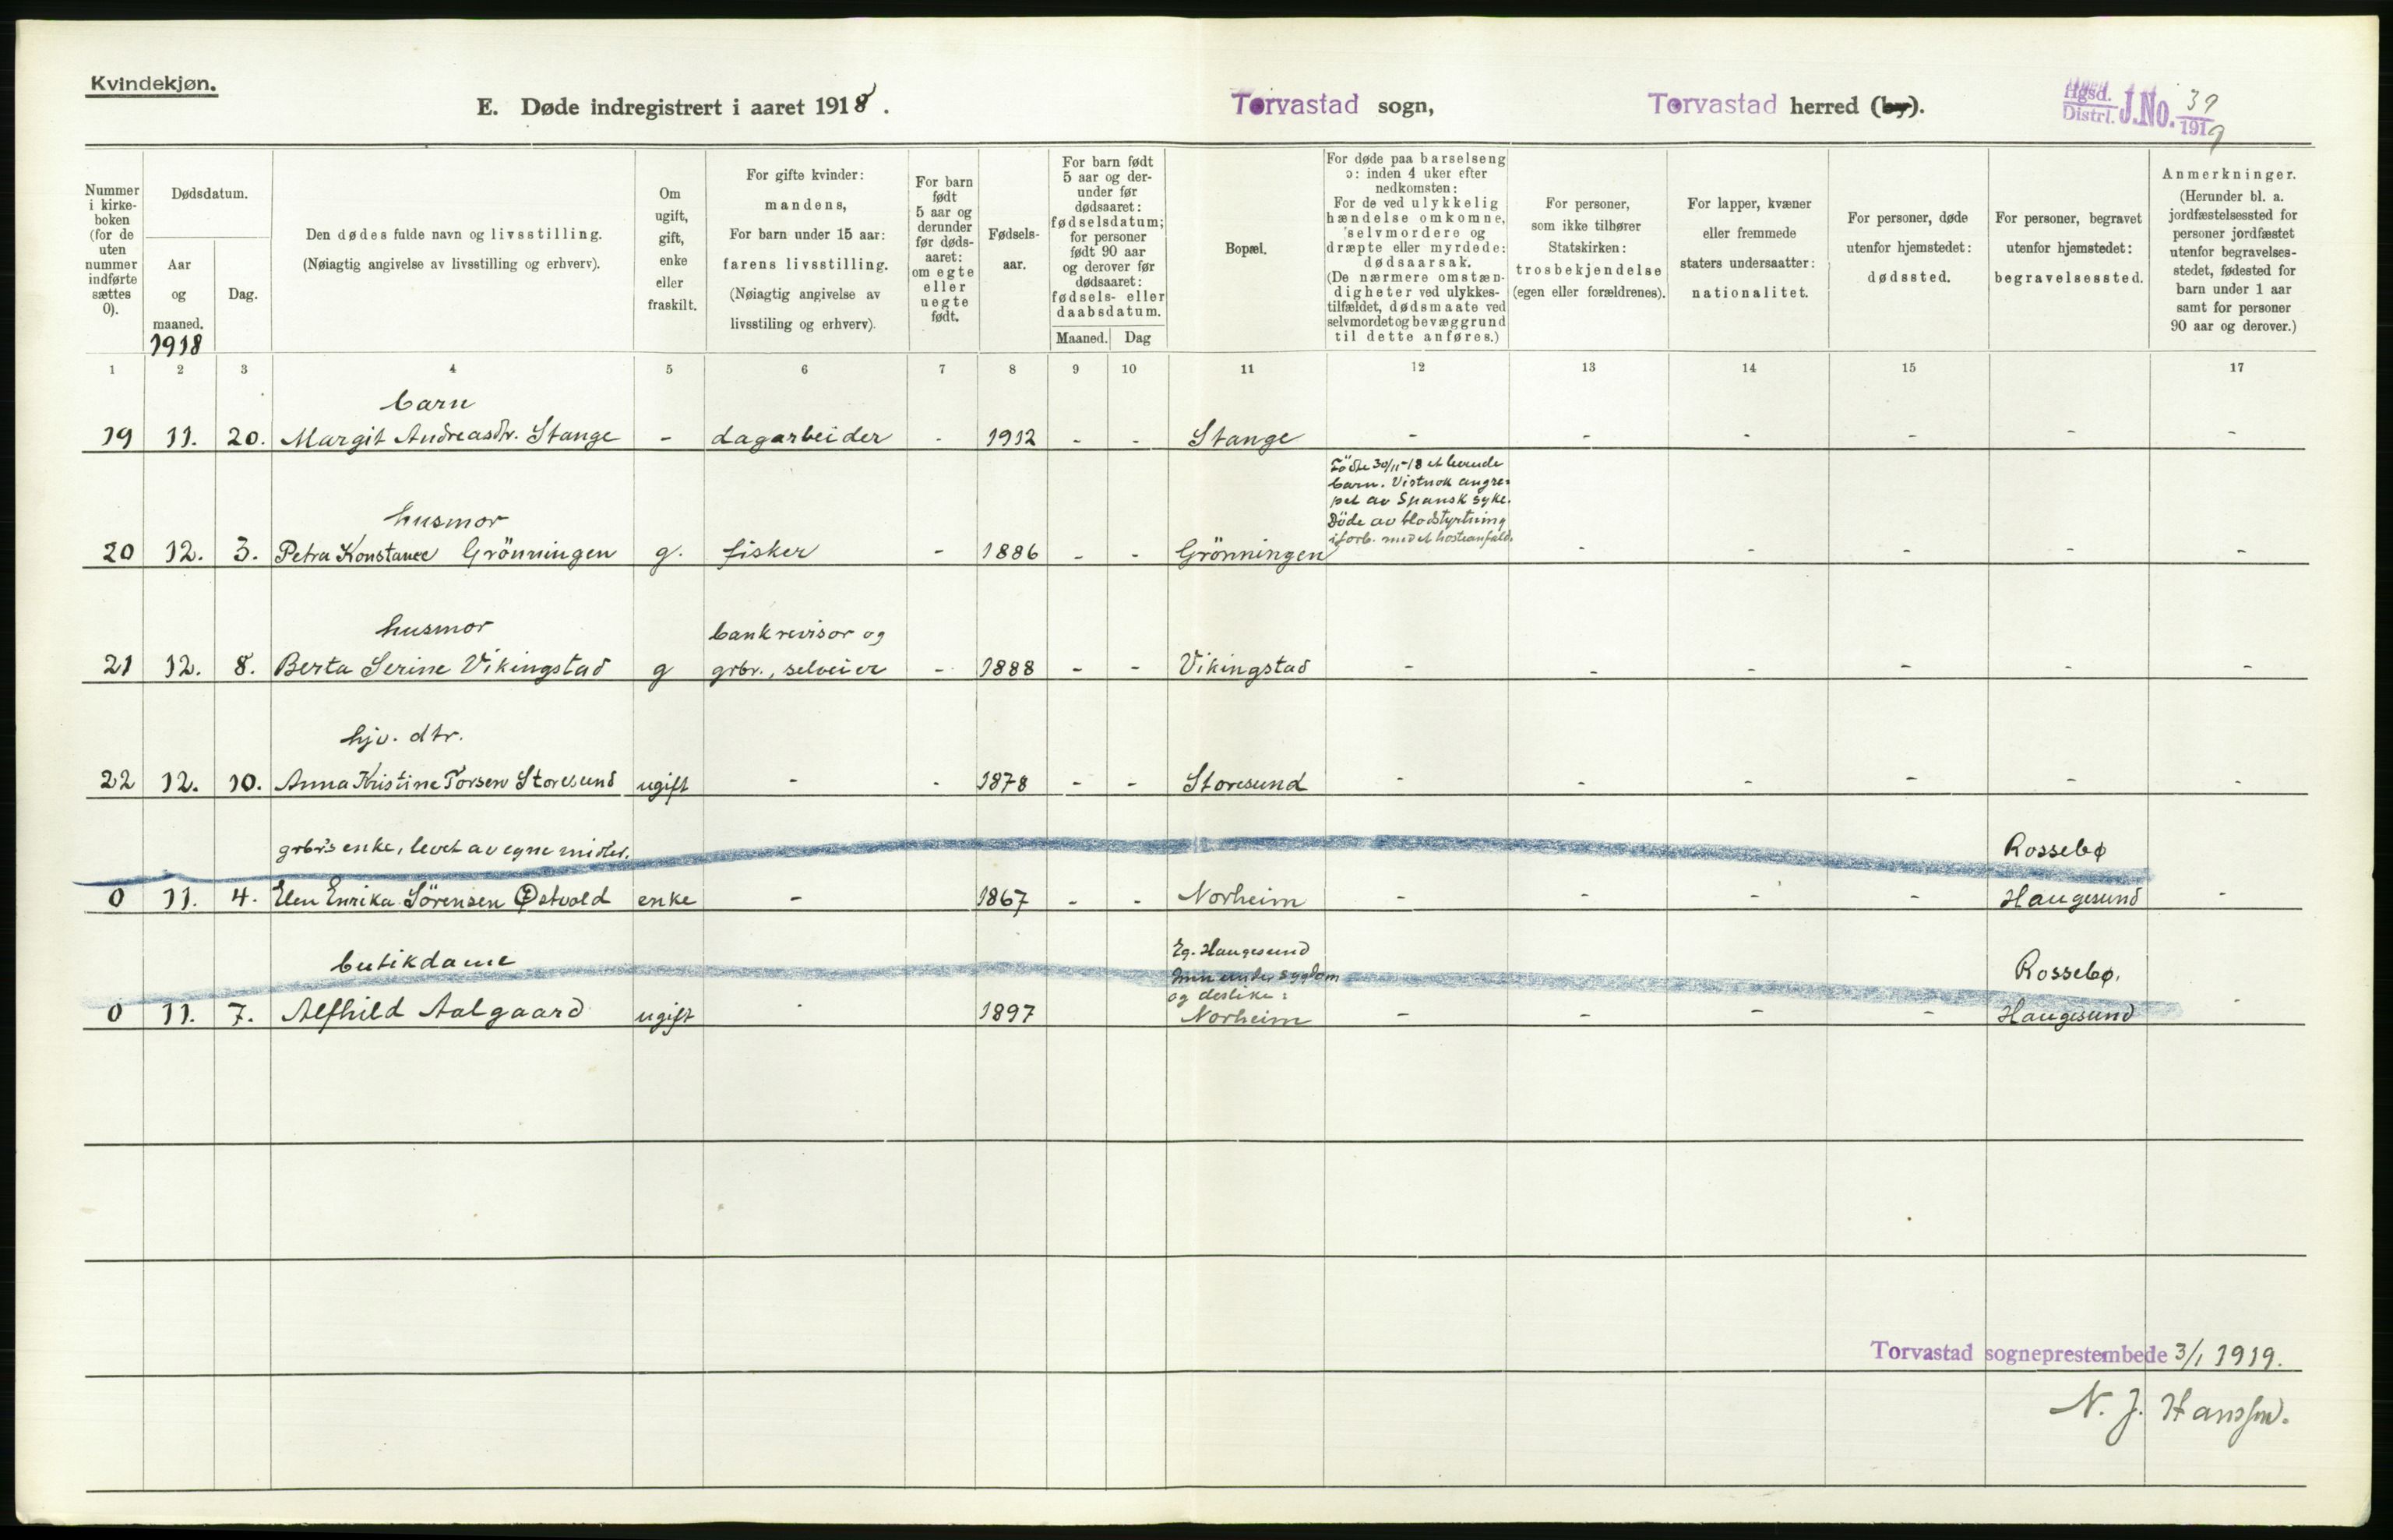 Kvindekjøn.
E. Døde indregistrert i aaret 1918.
Torvastad sogn,
Torvastad herred (by).
Hgsd.
Distrl. J.No. 39
1919
Nummer
i kirke-
boken
(for de
uten
nummer
indførte
sættes
0).
Dødsdatum.
Aar
og
maaned.
1918
Dag.
Den dødes fulde navn og livsstilling.
(Nøiagtig angivelse av livsstilling og erhverv).
Om
ugift,
gift,
enke
eller
fraskilt.
For gifte kvinder:
mandens,
For barn under 15 aar:
farens livsstilling.
(Nøiagtig angivelse av
livsstiling og erhverv).
For barn
født
5 aar og
derunder
før døds-
aaret:
om egte
eller
uegte
født.
Fødsels-
aar.
For barn født
5 aar og der-
under før
dødsaaret:
fødselsdatum;
for personer
født 90 aar
og derover før
dødsaaret:
fødsels- eller
daabsdatum.
Maaned. Dag
Bopæl.
For døde paa barselseng
ɔ: inden 4 uker efter
nedkomsten:
For de ved ulykkelig
hændelse omkomne,
selvmordere og
dræpte eller myrdede:
dødsaarsak.
(De nærmere omstæn-
digheter ved ulykkes-
tilfældet, dødsmaate ved
selvmordet og bevæggrund
til dette anføres.)
For personer,
som ikke tilhører
Statskirken:
trosbekjendelse
(egen eller forældrenes).
For lapper, kvæner
eller fremmede
staters undersaatter:
nationalitet.
For personer, døde
utenfor hjemstedet:
dødssted.
For personer, begravet
utenfor hjemstedet:
begravelsessted.
Anmerkninger.
(Herunder bl. a.
jordfæstelsessted for
personer jordfæstet
utenfor begravelses-
stedet, fødested for
barn under 1 aar
samt for personer
90 aar og derover.)
1 2 3 4 5 6 7 8 9 10 11 12 13 14 15 17
barn
19 11. 20. Margit Andreasdtr. Stange - dagarbeider - 1912 - - Stange - - - - - -
Födte 30/11-18 et levende
barn. Vistnok angre-
pet av Spansk syke.
Döde av blodstyrtning
i forb. med et hosteanfald.
husmor
20 12. 3. Petra Konstance Grönningen g. fisker - 1886 - - Grönningen - - - - -
husmor bankrevisor og
21 12. 8. Berta Serine Vikingstad g grbr., selveier - 1888 - - Vikingstad - - - - - -
hjv. dtr.
22 12. 10. Anna Kristine Torsen Storesund ugift - - 1878 - - Storesund - - - - - -
grbr's enke, levet av egne midler. Rossebø
0 11. 4. Elen Enrika Sörensen Østvold enke - 1867 - - Norheim - - - - Haugesund -
butikdame Eg. Haugesund Rossebø,
men under sygdom
og deslike:
0 11. 7. Alfhild Aalgaard ugift - 1897 Norheim - - - - Haugesund -
Torvastad sogneprestembede 3/1 1919.
N. J. Hanssen.